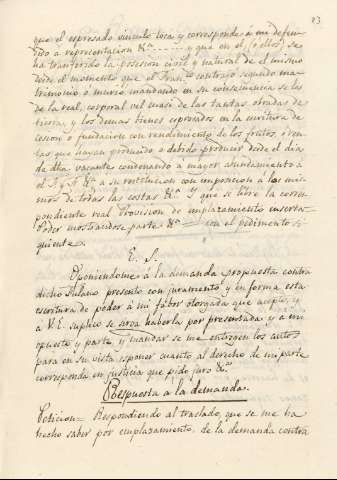 23
que el espresado vinculo toca y corresponde á mi defen-
dido a representacion &ª ------ y que en el (o ellos) se
ha transferido la posesion civil y natural de el mismo
desde el momento que el Franco contrajo segundo ma-
trimonio o murio mandando en su consecuencia se les
de la real, corporal vel cuasi de las tantas obradas de
tierra, y los demas bienes espresados en la escritura de
cesion o fundacion con rendimiento de los frutos, o ren-
tas que hayan producido o debido producir desde el dia
de dha vacante condenando a mayor abundamiento á
el F. y F. &ª a su restitucion con imposicion á los mis-
mos de todas las costas &ª Y que se libre la corres-
pondiente real Provision de emplazamiento inserta-
Poder mostrandose parte &ª con el pedimento si-
guiente.
E. S.
Oponiendome á la demanda propuesta contra
dicho Fulano presento con juramento y en forma esta
escritura de poder á mi fabor otorgada que acepto, y
a V.E. suplico se sirva haberla por presentada y a mi
opuesto y parte, y mandar se me entregen los autos
para en su vista esponer cuanto al derecho de mi parte
corresponda en justicia que pido juro &ª
Respuesta a la demanda.
Peticion = Respondiendo al traslado, que se me ha
hecho saber por emplazamiento, de la demanda contra